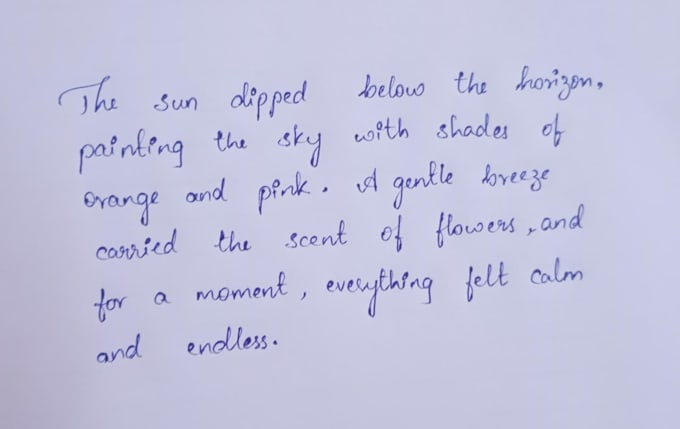 The sun dipped below the horizon,
painting the sky with shades of
orange and pink. A gentle breeze
carried the scent of flowers, and
for a moment, everything felt calm
and endless.